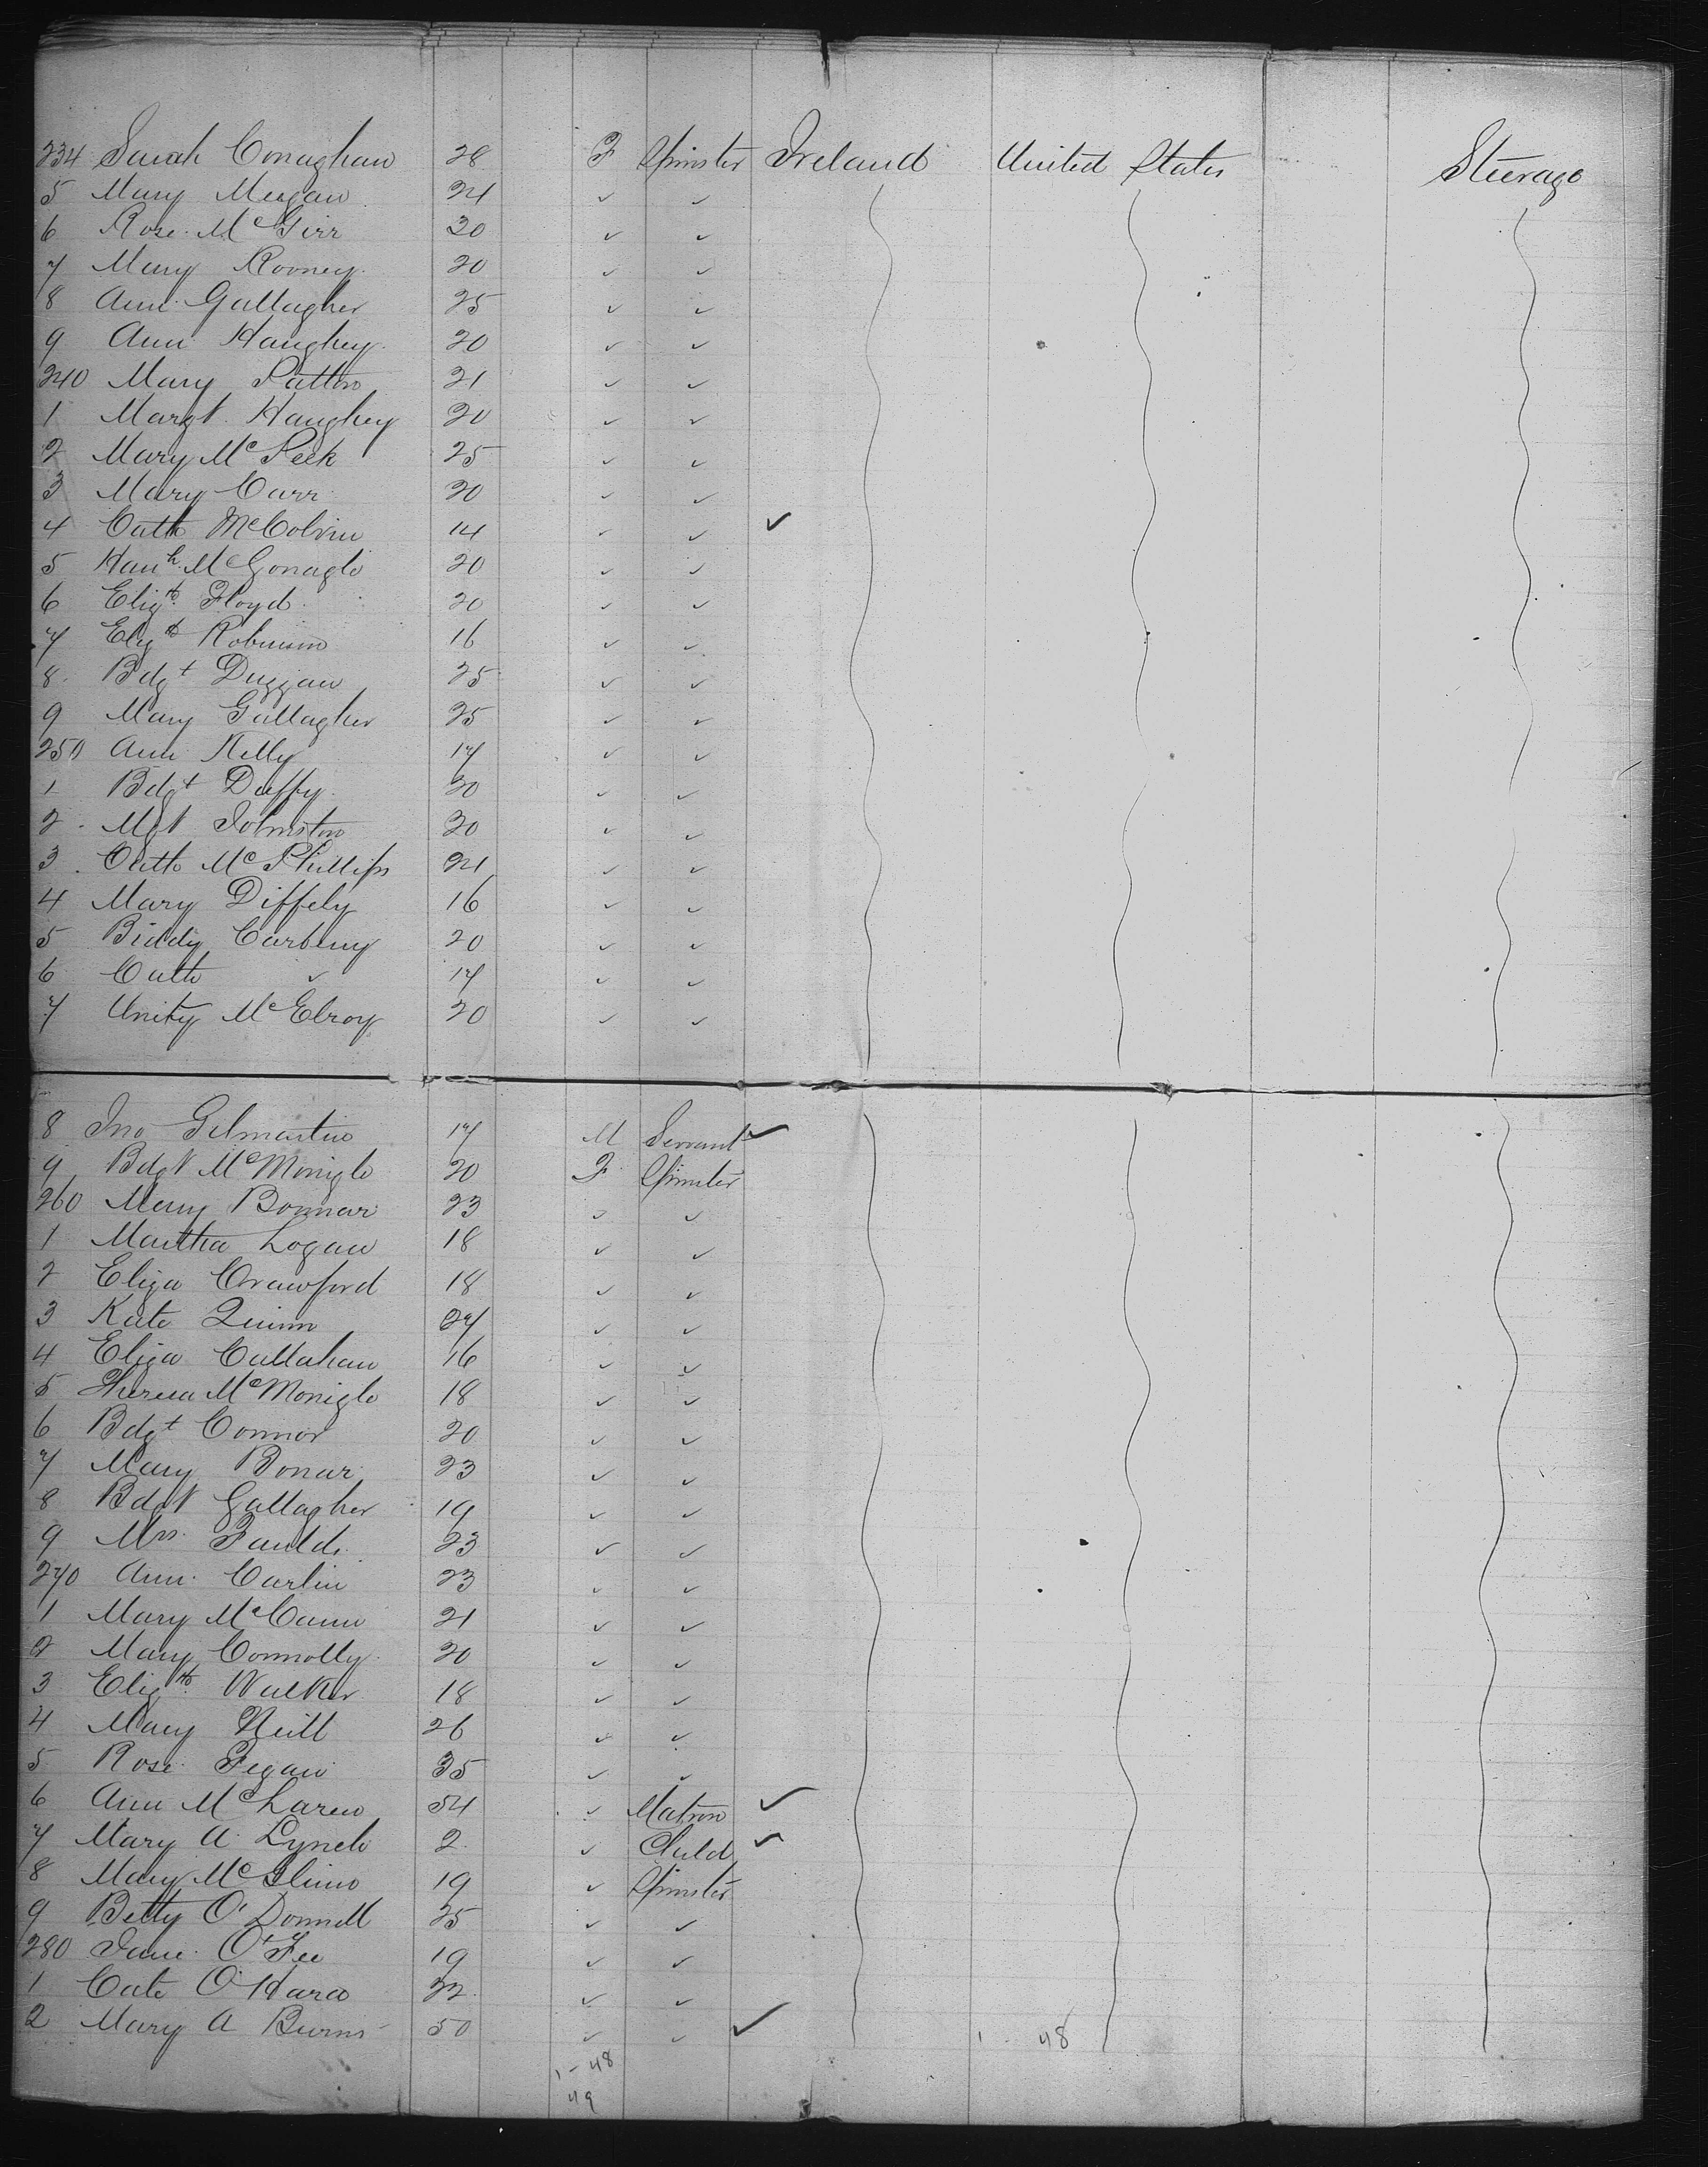 234 Sarah Conaghan 28 F Spinster Ireland United States Steerage
5 Mary Meegan 24 ✓ ✓
6 Rose McGirr 20 ✓ ✓
7 Mary Rooney 20 ✓ ✓
8 Ann Gallagher 25 ✓ ✓
9 Ann Haughey 20 ✓ ✓
240 Mary Patton 21 ✓ ✓
1 Margt Haughey 20 ✓ ✓
2 Mary McPeek 25 ✓ ✓
3 Mary Carr 20 ✓ ✓
4 Cath McColvin 14 ✓ ✓ ✓
5 Hanh McGonagle 20 ✓ ✓
6 Elizth Floyd 20 ✓ ✓
7 Elizth Robinson 16 ✓ ✓
8 Bdgt Duggan 25 ✓ ✓
9 Mary Gallagher 25 ✓ ✓
250 Ann Kelly 17 ✓ ✓
1 Bdgt Duffy 20 ✓ ✓
2 Mgt Johnston 20 ✓ ✓
3 Cath McPhillips 21 ✓ ✓
4 Mary Diffely 16 ✓ ✓
5 Biddy Carbeny 20 ✓ ✓
6 Cath ✓ 17 ✓ ✓
7 Unity McElroy 20 ✓ ✓
8 Jno Gilmartin 17 M Servant ✓
9 Bdgt McMonigle 20 F Spinster
260 Mary Bonnar 23 ✓ ✓
1 Martha Logan 18 ✓ ✓
2 Eliza Crawford 18 ✓ ✓
3 Kate Quinn 27 ✓ ✓
4 Eliza Callahan 16 ✓ ✓
5 Theresa McMonigle 18 ✓ ✓
6 Bdgt Connor 20 ✓ ✓
7 Mary Bonar 23 ✓ ✓
8 Bdgt Gallagher 19 ✓ ✓
9 Mrs. Faulds 23 ✓ ✓
270 Ann Carlin 23 ✓ ✓
1 Mary McCann 21 ✓ ✓
2 Mary Connolly 20 ✓ ✓
3 Elizth Walker 18 ✓ ✓
4 Mary Neill 26 ✓ ✓
5 Rose Fegan 35 ✓ ✓
6 Ann McLaren 54 ✓ Matron ✓
7 Mary A Lynch 2 ✓ Child ✓
8 Mary McGlinn 19 ✓ Spinster
9 Betty O'Donnell 25 ✓ ✓
280 Jane O'Fee 19 ✓ ✓
1 Cate O'Hara 22 ✓ ✓
2 Mary A Burns 50 ✓ ✓ ✓ 1 - 48
1 - 48
49